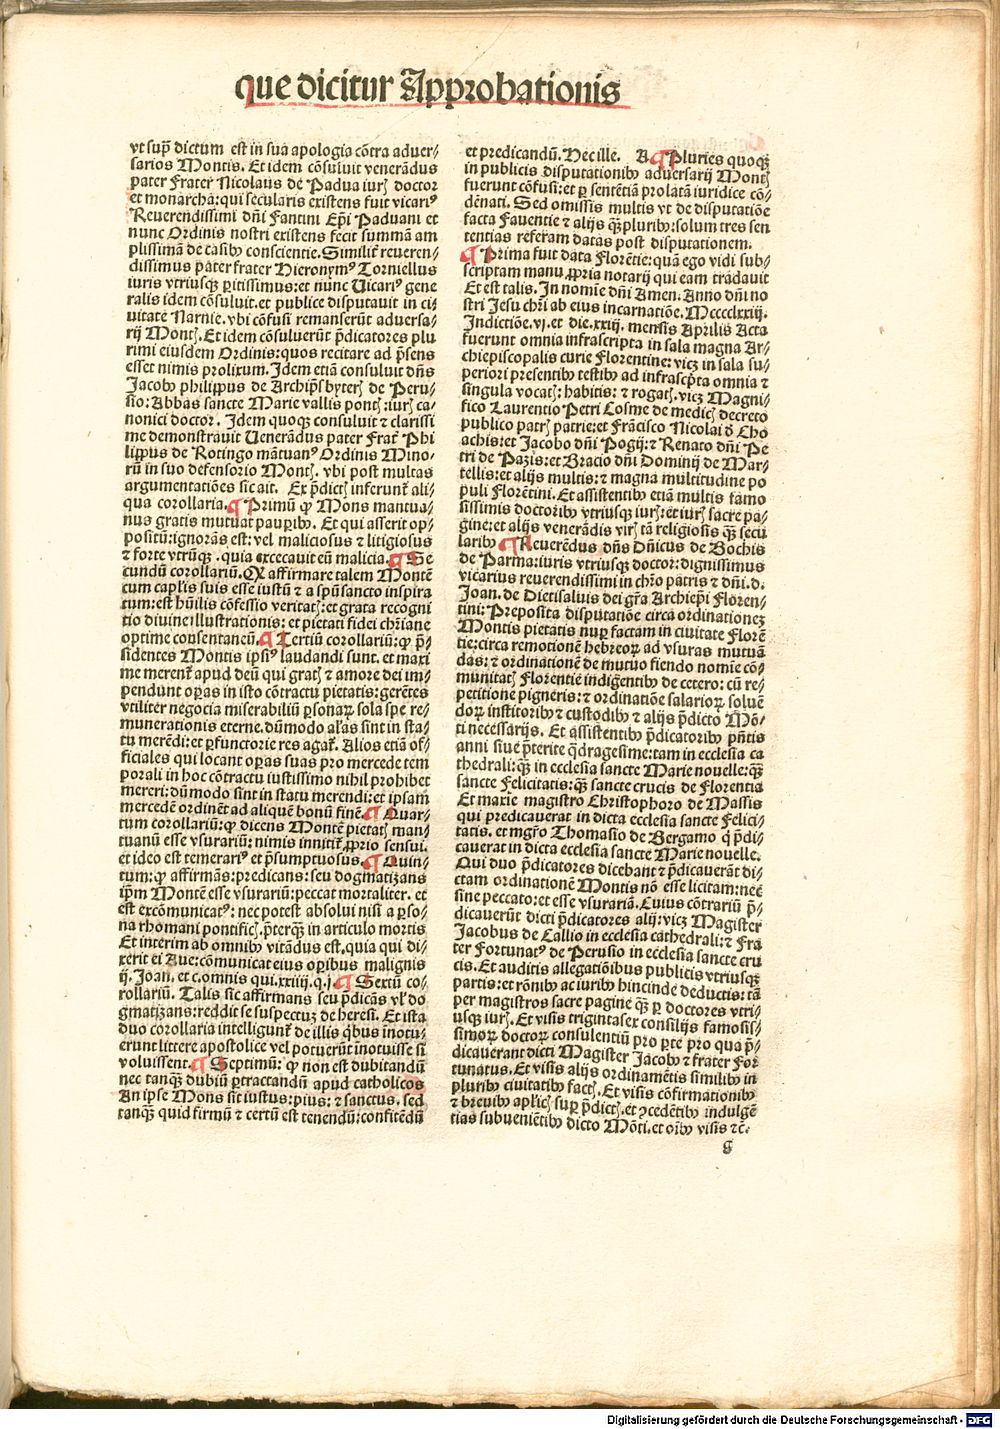 que dicitur Approbationis
vt sup̄ dictum est in sua apologia cōtra aduer⸗
sarios Montis. Et idem cōsuluit venerādus
pater Frater Nicolaus de Padua iurꝭ doctor
et monarcha: qui secularis existens fuit vicariꝰ
Reuerendissimi dn̄i Fantini Ep̄i Paduani et
nunc Ordinis nostri existens fecit summā am
plissimā de casibꝫ conscientie. Similit̄ reueren⸗
dissimus pater frater Hieronymꝰ Torniellus
iuris vtriusqꝫ ꝑitissimus: et nūc Uicariꝰ gene
ralis idem cōsuluit. et publice disputauit in ci⸗
uitate Narnie. vbi cōfusi remanserūt aduersa⸗
rij Montꝭ. Et idem cōsuluerūt p̄dicatores plu
rimi eiusdem Ordinis: quos recitare ad p̄sens
esset nimis prolixum. Idem etiā consuluit dn̄s
Jacobꝫ philippus de Archip̄sbyterꝭ de Peru⸗
sio: Abbas sancte Marie vallis pontꝭ: iurꝭ ca⸗
nonici doctor. Idem quoqꝫ consuluit ⁊ clarissi
me demonstrauit Uenerādus pater Frat̄ Phi
lippus de Rotingo mātuanꝰ Ordinis Mino⸗
rū in suo defensorio Montꝭ. vbi post multas
argumentatiōes sic ait. Ex p̄dictꝭ inferunt̄ ali⸗
qua corollaria. ¶ Primū ꝙ Mons mantua⸗
nus gratis mutuat pauꝑibꝫ. Et qui asserit op⸗
positū: ignorās est: vel maliciosus ⁊ litigiosus
⁊ forte vtrūqꝫ. quia excecauit eū malicia. ¶ Se
cundū corollariū. Qꝙ affirmare talem Montē
cum capl̄is suis esse iustū ⁊ a spū sancto inspira
tum: est hūilis cōfessio veritatꝭ: et grata recogni
tio diuine illustrationis: et pietati fidei chr̄iane
optime consentaneū. ¶ Tertiū corollariū: ꝙ p̄⸗
sidentes Montis ipsiꝰ laudandi sunt. et maxi
me merent̄ apud deū qui gratꝭ ⁊ amore dei im⸗
pendunt oꝑas in isto cōtractu pietatis: gerētes
vtiliter negocia miserabiliū ꝑsonaꝝ sola spe re⸗
munerationis eterne. dūmodo al̄as sint in sta⸗
tu merēdi: et ꝑfunctorie res agat̄. Alios etiā of⸗
ficiales qui locant oꝑas suas pro mercede tem
porali in hoc cōtractu iustissimo nihil prohibet
mereri: dūmodo sint in statu merendi: et ipsam
mercedē ordinēt ad aliquē bonū finē. ¶ Quar⸗
tum corollariū: ꝙ dicens Montē pietatꝭ man⸗
tuanū esse vsurariū: nimis innitit̄ ꝓprio sensui.
et ideo est temerariꝰ et p̄sumptuosus. ¶ Quin⸗
tum: ꝙ affirmās: predicans: seu dogmatizans
ip̄m Montē esse vsurariū: peccat mortaliter. et
est excōmunicatꝰ: nec potest absolui nisi a ꝑso⸗
na rhomani pontificꝭ. p̄terqꝫ in articulo mortis
Et interim ab omnibꝫ vitādus est. quia qui di⸗
xerit ei Aue: cōmunicat eius oꝑibus malignis
ij. Joan. et c. omnis qui. xxiiij. q. j. ¶ Sextū co⸗
rollariū. Talis sic affirmans seu p̄dicās vl̓ do
gmatizans: reddit se suspectuꝫ de heresi. Et ista
duo corollaria intelligunt̄ de illis q̇bus inotu⸗
erunt littere apostolice vel potuerūt inotuisse si
voluissent. ¶ Septimū: ꝙ non est dubitandū
nec tanqꝫ dubiū ꝑtractandū apud catholicos
An ipse Mons sit iustus: pius: ⁊ sanctus. sed
tanqꝫ quid firmū ⁊ certū est tenendū: confitēdū
et predicandū. Hec ille. A. ¶ Pluries quoqꝫ
in publicis disputationibꝫ aduersarij Montꝭ
fuerunt cōfusi: et ꝑ sentētiā prolatā iuridice cō⸗
dēnati. Sed omissis multis vt de disputatiōe
facta Fauentie ⁊ alijs qꝫpluribꝫ: solum tres sen
tentias referam datas post disputationem.
¶ Prima fuit data Florētie: quā ego vidi sub⸗
scriptam manu ꝓpria notarij qui eam tradauit
Et est talis. In nomīe dn̄i Amen. Anno dn̄i no
stri Jesu chr̄i ab eius incarnatiōe. Mcccclxxiij.
Indictiōe. vj. et die. xxij. mensis Aprilis Acta
fuerunt omnia infrascripta in sala magna Ar⸗
chiepiscopalis curie Florentine: vicꝫ in sala su⸗
periori presentibꝫ testibꝫ ad infrascp̄ta omnia ⁊
singula vocatꝭ: habitis: ⁊ rogatꝭ. vicꝫ Magni⸗
fico Laurentio Petri Cosme de medicꝭ decreto
publico patrꝭ patrie: et Frācisco Nicolai ō Cho
achis: et Jacobo dn̄i Pogij: ⁊ Renato dn̄i Pe
tri de Pazis: et Bracio dn̄i Dominij de Mar⸗
tellis: et alijs multis: ⁊ magna multitudine po
puli Florētini. Et assistentibꝫ etiā multis famo
sissimis doctoribꝫ vtriusqꝫ iurꝭ: et iurꝭ sacre pa⸗
gine: et alijs venerādis virꝭ tā religiosis qꝫ secu
laribꝫ ¶ Reuerēdus dn̄s Dn̄icus de Bochis
de Parma: iuris vtriusqꝫ doctor: dignissimus
vicarius reuerendissimi in chr̄o patris ⁊ dn̄i. d.
Joan. de Dietisaluis dei gr̄a Archiep̄i Floren⸗
tini: Preposita disputatiōe circa ordinationeꝫ
Montis pietatis nuꝑ factam in ciuitate Florē
tie: circa remotionē hebreoꝝ ad vsuras mutuā
das: ⁊ ordinationē de mutuo fiendo nomīe cō⸗
munitatꝭ Florentie indigentibꝫ de cetero: cū re⸗
petitione pigneris: ⁊ ordinatiōe salarioꝝ soluē
doꝝ institoribꝫ ⁊ custodibꝫ ⁊ alijs p̄dicto Mō⸗
ti necessarijs. Et assistentibꝫ p̄dicatoribꝫ p̄ntis
anni siue p̄terite q̈dragesime: tam in ecclesia ca
thedrali: qꝫ in ecclesia sancte Marie nouelle: qꝫ
sancte Felicitatis: qꝫ sancte crucis de Florentia
Et maxie magistro Christophoro de Massis
qui predicauerat in dicta ecclesia sancte Felici⸗
tatis. et mgr̄o Thomasio de Bergamo q̇ p̄di⸗
cauerat in dicta ecclesia sancte Marie nouelle.
Qui duo p̄dicatores dicebant ⁊ p̄dicauerāt di⸗
ctam ordinationē Montis nō esse licitam: nec
sine peccato: et esse vsurariā. Cuius cōtrariū p̄⸗
dicauerūt dicti p̄dicatores alij: vicꝫ Magister
Jacobus de Callio in ecclesia cathedrali: ⁊ Fra
ter Fortunatꝰ de Perusio in ecclesia sancte cru
cis. Et auditis allegatiōibus publicis vtriusqꝫ
partis: et rōnibꝫ ac iuribꝫ hincinde deductis: tā
per magistros sacre pagine qꝫ ꝑ doctores vtri⸗
usqꝫ iurꝭ. Et visis trigintasex consilijs famosis⸗
simoꝝ doctoꝝ consulentiū pro ꝑte pro qua p̄⸗
dicauerant dicti Magister Jacobꝫ ⁊ frater For
tunatus. Et visis alijs ordinamētis similibꝫ in
pluribꝫ ciuitatibꝫ factꝭ. Et visis cōfirmationibꝫ
⁊ breuibꝫ apl̄icꝭ suꝑ p̄dictꝭ. et ꝯcedētibꝫ indulgē
tias subueniētibꝫ dicto Mōti. et oībꝫ visis ⁊c̄.
g
Digitalisierung gefördert durch die Deutsche Forschungsgemeinschaft - DFG